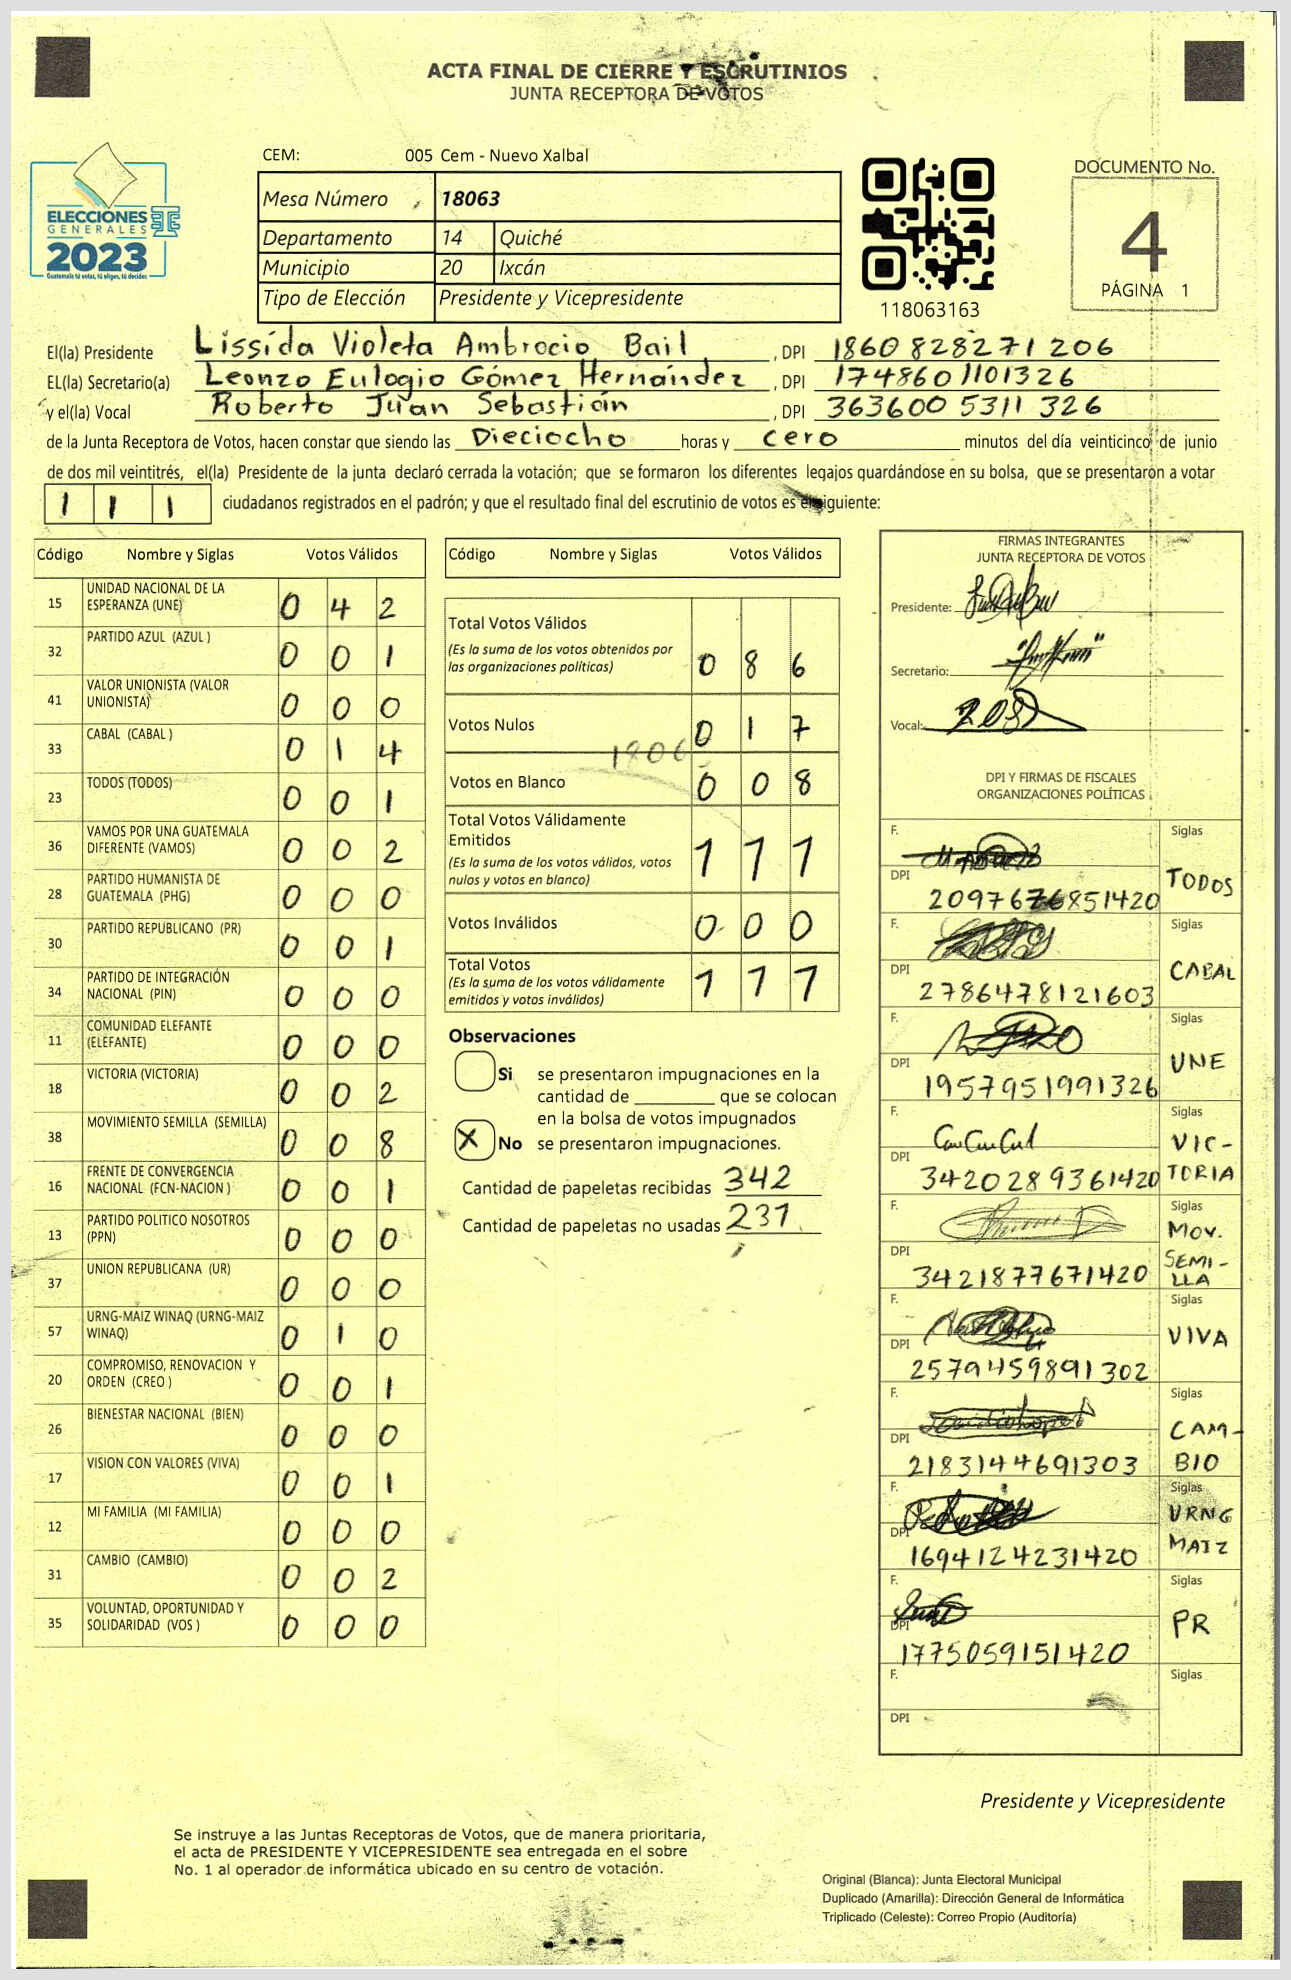 ACTA FINAL DE CIERRE Y ESCRUTINIOS
JUNTA RECEPTORA DE VOTOS
ELECCIONES
GENERALES
2023
Guatemala tú votas, tú eliges, tú decides
CEM: 005 Cem - Nuevo Xalbal
Mesa Número 18063
Departamento 14 Quiché
Municipio 20 Ixcán
Tipo de Elección Presidente y Vicepresidente
118063163
DOCUMENTO No.
4
PÁGINA 1
El(la) Presidente Lissída Violeta Ambrocio Bail , DPI 1860828271206
EL(la) Secretario(a) Leonzo Eulogio Gómez Hernández , DPI 1748601101326
y el(la) Vocal Roberto Juan Sebastián , DPI 3636005311326
de la Junta Receptora de Votos, hacen constar que siendo las Dieciocho horas y cero minutos del día veinticinco de junio
de dos mil veintitrés, el(la) Presidente de la junta declaró cerrada la votación; que se formaron los diferentes legajos guardándose en su bolsa, que se presentaron a votar
1 1 1 ciudadanos registrados en el padrón; y que el resultado final del escrutinio de votos es el siguiente:
Código Nombre y Siglas Votos Válidos
15 UNIDAD NACIONAL DE LA ESPERANZA (UNE) 0 4 2
32 PARTIDO AZUL (AZUL ) 0 0 1
41 VALOR UNIONISTA (VALOR UNIONISTA) 0 0 0
33 CABAL (CABAL ) 0 1 4
23 TODOS (TODOS) 0 0 1
36 VAMOS POR UNA GUATEMALA DIFERENTE (VAMOS) 0 0 2
28 PARTIDO HUMANISTA DE GUATEMALA (PHG) 0 0 0
30 PARTIDO REPUBLICANO (PR) 0 0 1
34 PARTIDO DE INTEGRACIÓN NACIONAL (PIN) 0 0 0
11 COMUNIDAD ELEFANTE (ELEFANTE) 0 0 0
18 VICTORIA (VICTORIA) 0 0 2
38 MOVIMIENTO SEMILLA (SEMILLA) 0 0 8
16 FRENTE DE CONVERGENCIA NACIONAL (FCN-NACION ) 0 0 1
13 PARTIDO POLITICO NOSOTROS (PPN) 0 0 0
37 UNION REPUBLICANA (UR) 0 0 0
57 URNG-MAIZ WINAQ (URNG-MAIZ WINAQ) 0 1 0
20 COMPROMISO, RENOVACION Y ORDEN (CREO ) 0 0 1
26 BIENESTAR NACIONAL (BIEN) 0 0 0
17 VISION CON VALORES (VIVA) 0 0 1
12 MI FAMILIA (MI FAMILIA) 0 0 0
31 CAMBIO (CAMBIO) 0 0 2
35 VOLUNTAD, OPORTUNIDAD Y SOLIDARIDAD (VOS ) 0 0 0
Código Nombre y Siglas Votos Válidos
Total Votos Válidos 0 8 6
(Es la suma de los votos obtenidos por
las organizaciones políticas)
Votos Nulos 0 1 7
1806
Votos en Blanco 0 0 8
Total Votos Válidamente
Emitidos 1 1 1
(Es la suma de los votos válidos, votos
nulos y votos en blanco)
Votos Inválidos 0 0 0
Total Votos 1 1 1
(Es la suma de los votos válidamente
emitidos y votos inválidos)
Observaciones
Si se presentaron impugnaciones en la
cantidad de ________ que se colocan
en la bolsa de votos impugnados
X No se presentaron impugnaciones.
Cantidad de papeletas recibidas 342
Cantidad de papeletas no usadas 231
FIRMAS INTEGRANTES
JUNTA RECEPTORA DE VOTOS
Presidente:
Secretario:
Vocal:
DPI Y FIRMAS DE FISCALES
ORGANIZACIONES POLÍTICAS
F. Siglas
DPI 2097676851420 TODOS
F. Siglas
DPI 2786478121603 CABAL
F. Siglas
DPI 1957951991326 UNE
F. Siglas
DPI 3420289361420 VIC-TORIA
F. Siglas
DPI 3421877671420 MOV. SEMI-LLA
F. Siglas
DPI 2579459891302 VIVA
F. Siglas
DPI 2183144691303 CAM-BIO
F. Siglas
DPI 1694124231420 URNG MAIZ
F. Siglas
DPI 1775059151420 PR
F. Siglas
DPI
Presidente y Vicepresidente
Se instruye a las Juntas Receptoras de Votos, que de manera prioritaria,
el acta de PRESIDENTE Y VICEPRESIDENTE sea entregada en el sobre
No. 1 al operador de informática ubicado en su centro de votación.
Original (Blanca): Junta Electoral Municipal
Duplicado (Amarilla): Dirección General de Informática
Triplicado (Celeste): Correo Propio (Auditoría)